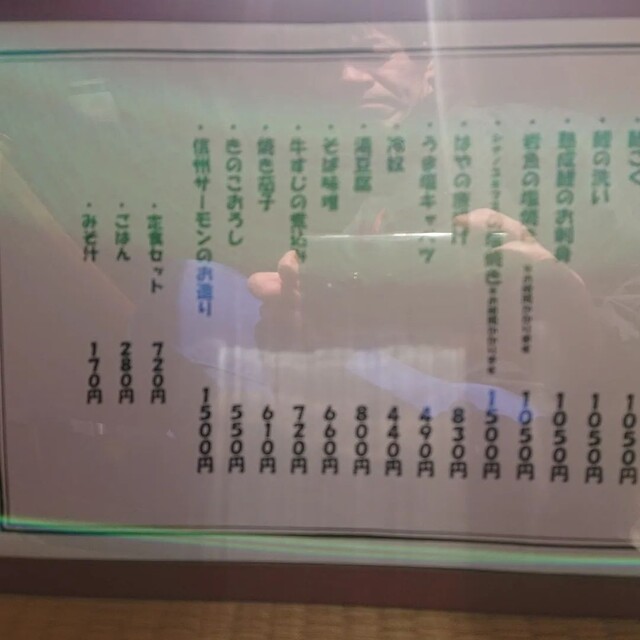 鯉こく 1050円
・鯉の洗い 1050円
・熟成鯉のお刺身 1050円
・岩魚の塩焼 ※お時間かかります 1050円
・シナノユキマスの塩焼き ※お時間かかります 1500円
・はやの唐揚げ 830円
・うま塩キャベツ 490円
・冷奴 440円
・湯豆腐 800円
・そば味噌 660円
・牛すじの煮込み 720円
・焼き茄子 610円
・きのこおろし 550円
・信州サーモンのお造り 1500円
・定食セット 720円
・ごはん 280円
・みそ汁 170円